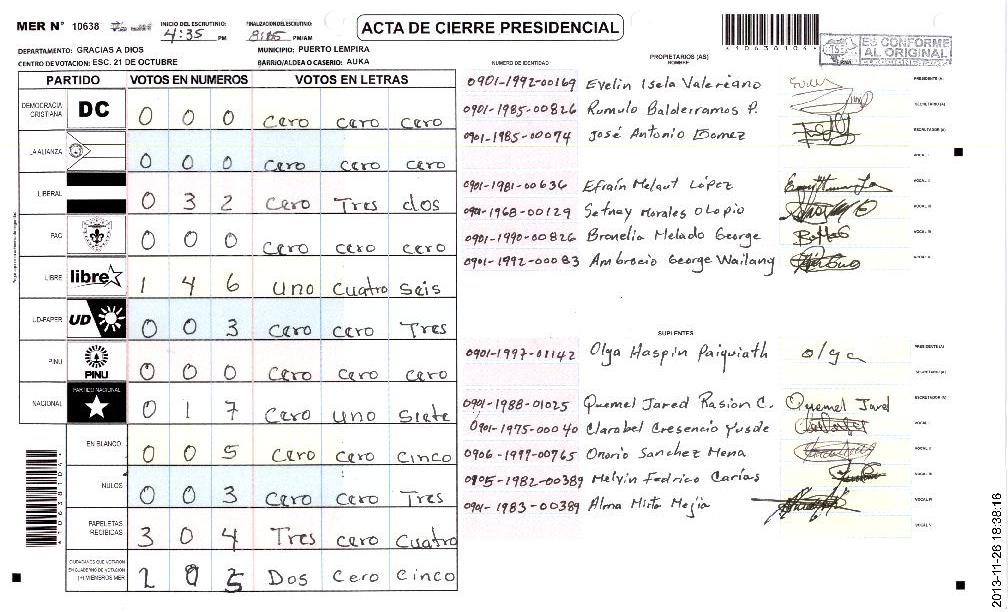 MER N° 10638
INICIO DEL ESCRUTINIO: 4:35 PM
FINALIZACION DEL ESCRUTINIO: PM/AM
ACTA DE CIERRE PRESIDENCIAL
41063810
ES CONFORME AL ORIGINAL
DEPARTAMENTO: GRACIAS A DIOS
MUNICIPIO: PUERTO LEMPIRA
CENTRO DE VOTACION: ESC. 21 DE OCTUBRE
BARRIO/ALDEA O CASERIO: AUKA
PARTIDO VOTOS EN NUMEROS VOTOS EN LETRAS
DEMOCRACIA CRISTIANA DC 0 0 0 cero cero cero
LA ALIANZA 0 0 0 cero cero cero
LIBERAL 0 3 2 cero Tres dos
PAC 0 0 0 cero cero cero
LIBRE libre 1 4 6 uno cuatro seis
UD-FAPER UD 0 0 3 cero cero Tres
PINU PINU 0 0 0 cero cero cero
NACIONAL PARTIDO NACIONAL 0 1 7 cero uno siete
EN BLANCO 0 0 5 cero cero cinco
NULOS 0 0 3 cero cero Tres
PAPELETAS RECIBIDAS 3 0 4 Tres cero cuatro
CIUDADANOS QUE VOTARON EN CUADERNO DE VOTACION (+) MIEMBROS MER 2 0 5 Dos Cero Cinco
NUMERO DE IDENTIDAD PROPIETARIOS (AS) NOMBRE
0901-1992-00169 Evelin Isela Valeriano PRESIDENTE (A)
0901-1985-00826 Romulo Balderramos P. SECRETARIO (A)
0901-1985-00074 José Antonio Gomez ESCRUTADOR (A)
VOCAL I
0901-1981-00636 Efraín Melaut López VOCAL II
0901-1968-00129 Setnay Morales Olopio VOCAL III
0901-1990-00826 Bronelia Melado George VOCAL IV
0901-1992-00083 Ambrocio George Wailang VOCAL V
SUPLENTES
0901-1997-01142 Olga Haspin Paiquiath olga PRESIDENTE (A)
SECRETARIO (A)
0901-1988-01025 Quemel Jared Rasion C. Quemel Jared ESCRUTADOR (A)
0901-1975-00040 Clarabel Cresencio Yusde VOCAL I
0906-1997-00765 Onorio Sanchez Mena VOCAL II
0905-1982-00389 Melvin Fedrico Carías VOCAL III
0901-1983-00389 Alma Misto Mejia VOCAL IV
VOCAL V
2013-11-26 18:38:16